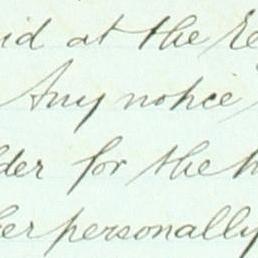 id at the Re
Any notice
lder for the
her personally